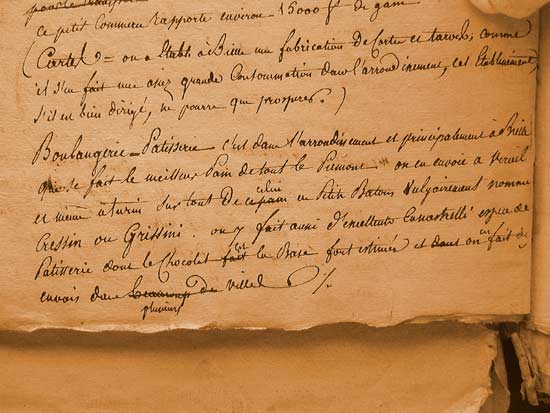 ce petit Commerce rapporte environ 15000 f. de gain
(Cartes = on a Etabli à Bielle une fabrication de Cartes et tarots, comme
il s'en fait une assez grande Consommation dans l'arrondissement, cet Etablissement,
s'il est bien dirigé, ne pourra que prosperer.)
Boulangerie = Patisserie c'est dans l'arrondissement et principalement à Bielle
que se fait le meilleur Pain de tout le Piémont on en envoie a verceil
et même à turin sur tout de celui en Petits Batons vulgairement nommé
Cressin ou Grissini. on y fait aussi d'excellents Canastrelli espece de
Patisserie dont le Chocolat est la Base fort estimée et dont on en fait des
envois dans plusieurs de villes ./.